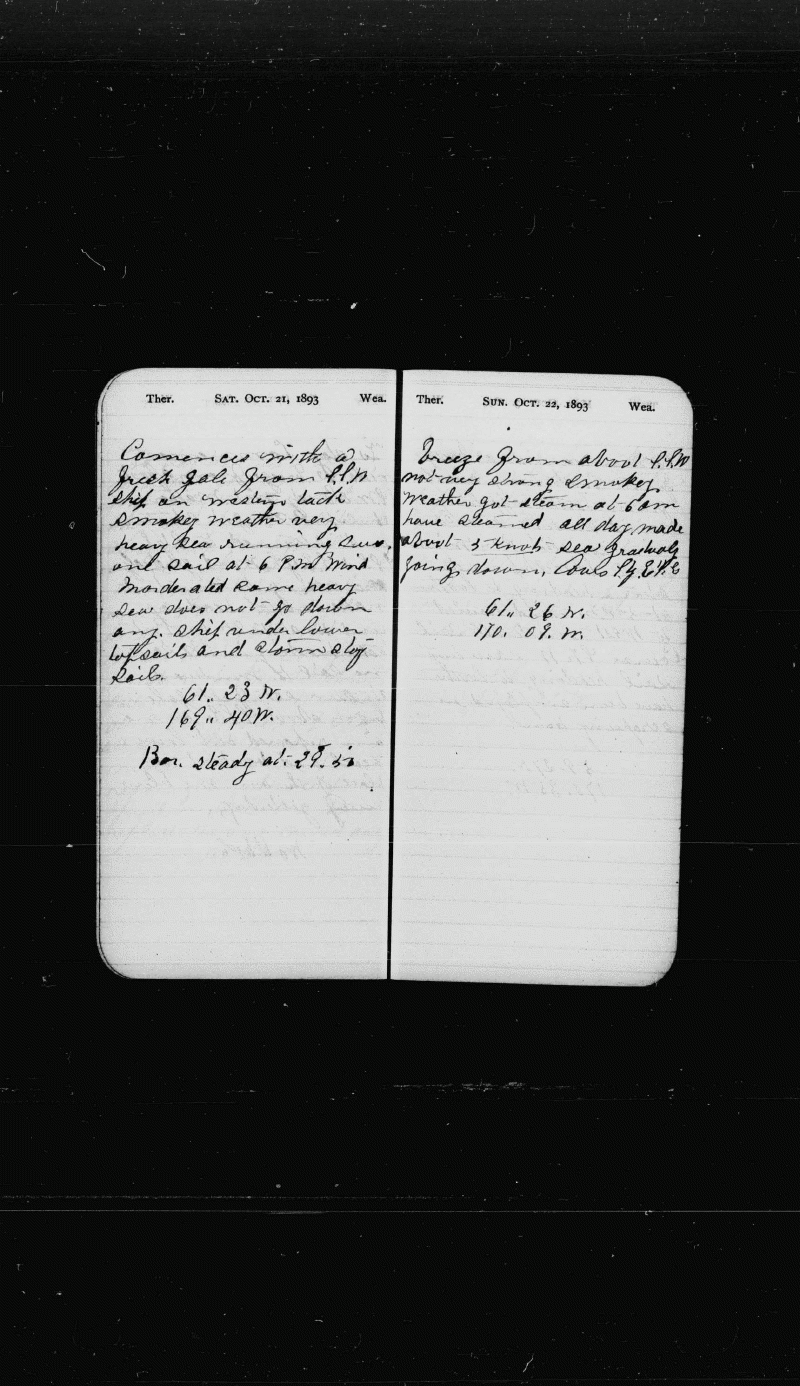 Ther. SAT. OCT. 21, 1893 Wea.
Comences with a
fresh gale from S.S.W
ship on western tack
smokey weather very
heavy sea running saw
one sail at 6 P.M. Wind
Moderated some heavy
sea does not go down
any. ship under lower
topsails and storm stay
sails.
61,, 23 N.
169,, 40 W.
Bar. steady at. 29.
Ther. SUN. OCT. 22, 1893 Wea.
breeze from about S.S.W
not very strong & smokey
weather got steam at 6 am
have steamed all day made
about 5 knots sea gradualy
going down,
61,, 26 N.
170. 09. W.